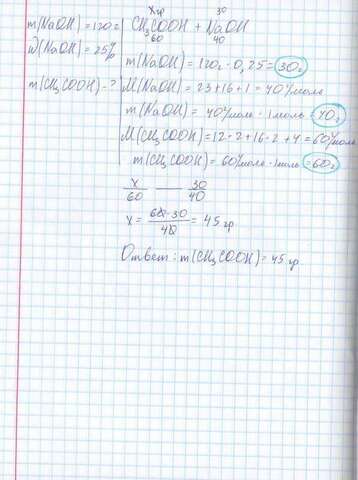 m(NaOH) = 120г
ω(NaOH) = 25%
m(CH3COOH) - ?
Xгр 30
CH3COOH + NaOH
60 40
m(NaOH) = 120г · 0,25 = 30г
M(NaOH) = 23+16+1 = 40г/моль
m(NaOH) = 40г/моль · 1моль = 40г
M(CH3COOH) = 12·2+16·2+4 = 60г/моль
m(CH3COOH) = 60г/моль · 1моль = 60г
X/60 — 30/40
X = 60·30/40 = 45 гр
Ответ: m(CH3COOH) = 45 гр.